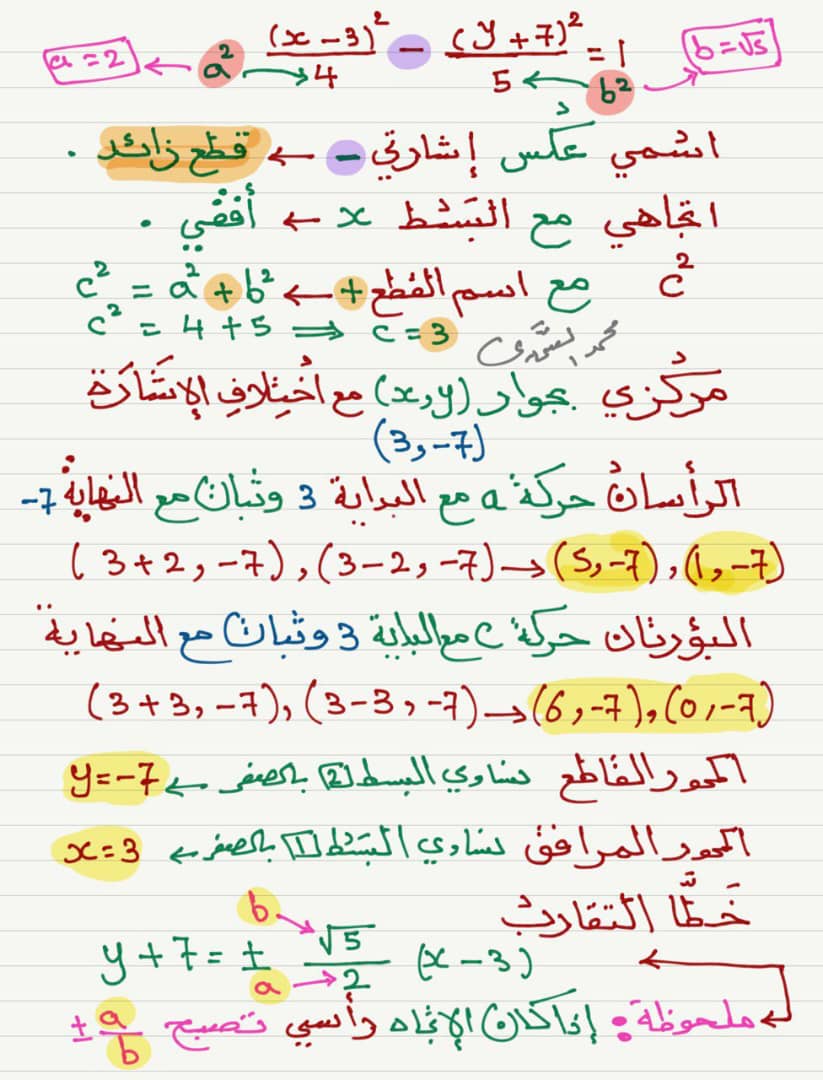 a = 2 ← a² → (x − 3)²/4 − (y + 7)²/5 = 1 ← b² → b = √5
اسمي عكس إشارتي − ← قطع زائد .
اتجاهي مع البَسْط x ← أفقي .
c² مع اسم القطع + ← c² = a² + b²
c² = 4 + 5 ⟹ c = 3
مركزي بجوار (x,y) مع اختلافِ الإشارة
(3, −7)
الرأسان حركة a مع البداية 3 وثبات مع النهاية −7
(3+2, −7), (3−2, −7) → (5, −7), (1, −7)
البؤرتان حركة c مع البداية 3 وثبات مع النهاية
(3+3, −7), (3−3, −7) → (6, −7), (0, −7)
المحور القاطع نساوي البسط [2] بالصفر ← y = −7
المحور المرافق نساوي البَسْط [1] بالصفر ← x = 3
خَطَّا التقارب
b a
y + 7 = ± √5/2 (x − 3)
ملحوظة : إذا كان الإتجاه رأسي تصبح ± a/b